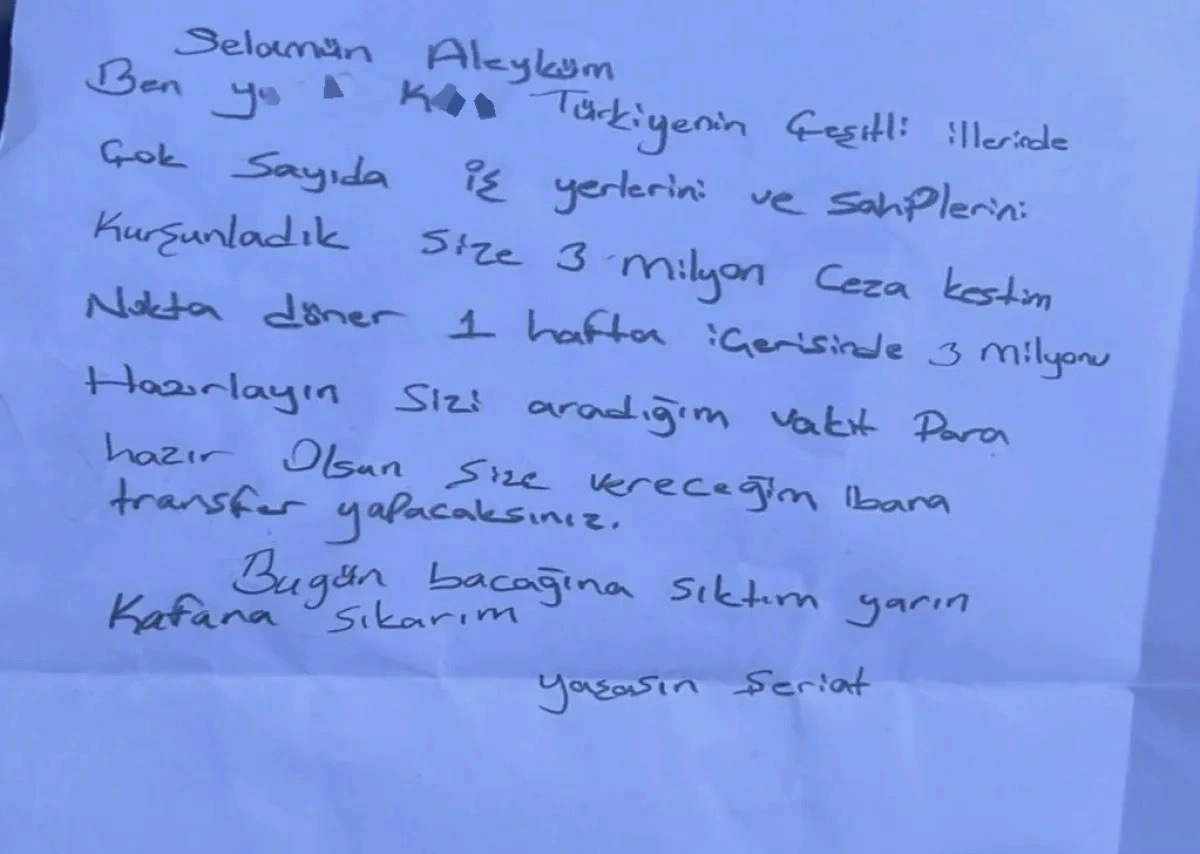 Selamün Aleyküm
Ben Türkiyenin Çeşitli illerinde
Çok Sayıda iş yerlerini ve Sahiplerini
Kurşunladık Size 3 milyon Ceza kestim
Nokta döner 1 hafta içerisinde 3 milyonu
Hazırlayın Sizi aradığım vakit Para
hazır Olsun Size vereceğim Ibana
transfer yapacaksınız.
Bugün bacağına sıktım yarın
Kafana sıkarım
yaşasın Şeriat